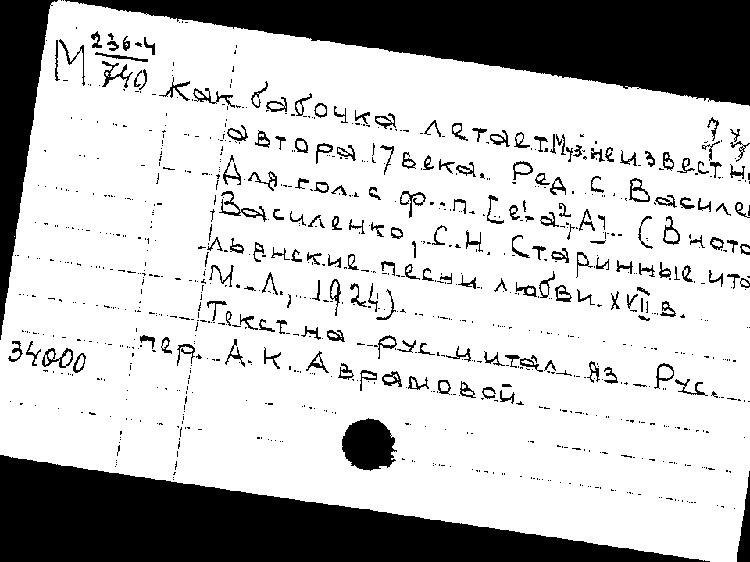 М 236-4
740
Как бабочка летает. Муз. неизвестн
автора 17 века. Ред. С. Василе
Для гол. с ф.-п. [e¹-a², A]. (В нота
Василенко, С.Н. Старинные ита
льянские песни любви XVII в.
М.-Л., 1924).
Текст на рус. и итал. яз. Рус.
пер. А.К. Аврамовой.
34000